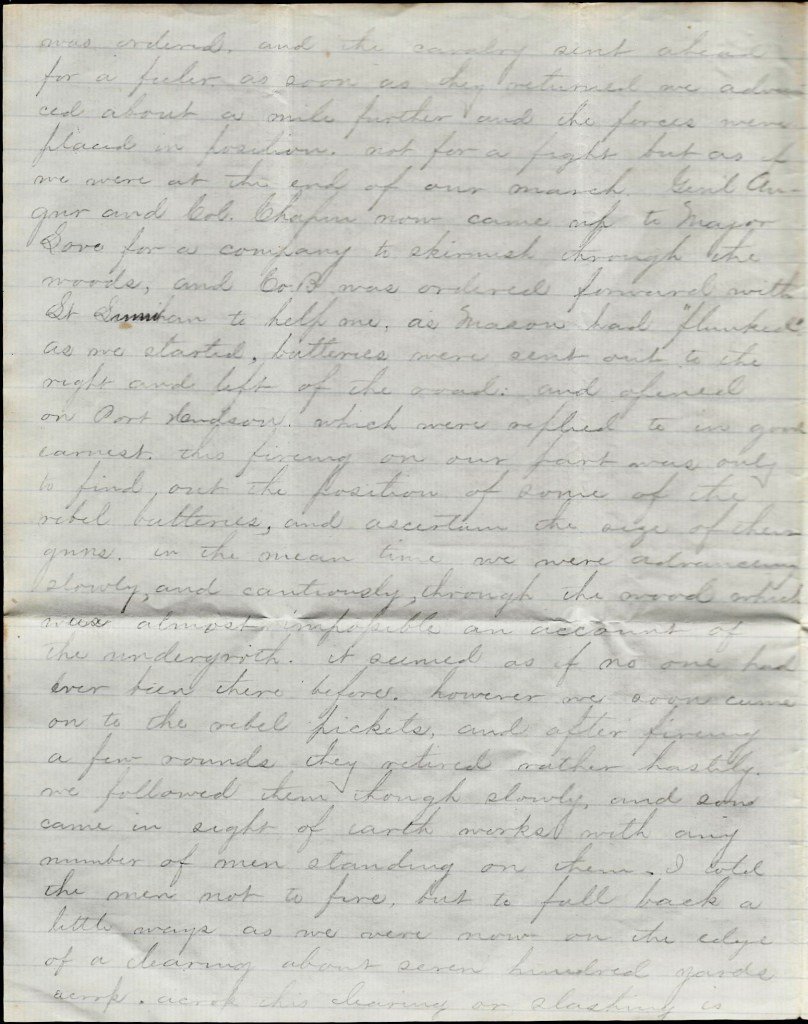 was ordered. and the cavalry sent ahead
for a feeler. as soon as they returned we advan
ced about a mile further and the forces were
placed in position. not for a fight but as if
we were at the end of our march. Genl Au-
gur and Col. Chapin now came up to Major
Love for a company to skirmish through the
woods, and Co. B was ordered forward with
Lt to help me. as Mason had "flunked"
as we started, batteries were sent out to the
right and left of the road: and opened
on Port Hudson. which were replied to in good
earnest. this fireing on our part was only
to find out the position of some of the
rebel batteries, and ascertain the size of their
guns. in the mean time we were advanceing
slowly, and cautiously, through the wood which
was almost impossible an account of
the undergroth. it seemed as if no one had
ever been there before. however we soon came
on to the rebel pickets, and after fireing
a few rounds they retired rather hastily.
we followed them though slowly, and soon
came in sight of earth works with any
number of men standing on them. I told
the men not to fire, but to fall back a
little ways as we were now on the edge
of a clearing about seven hundred yards
across. across this clearing or slashing is